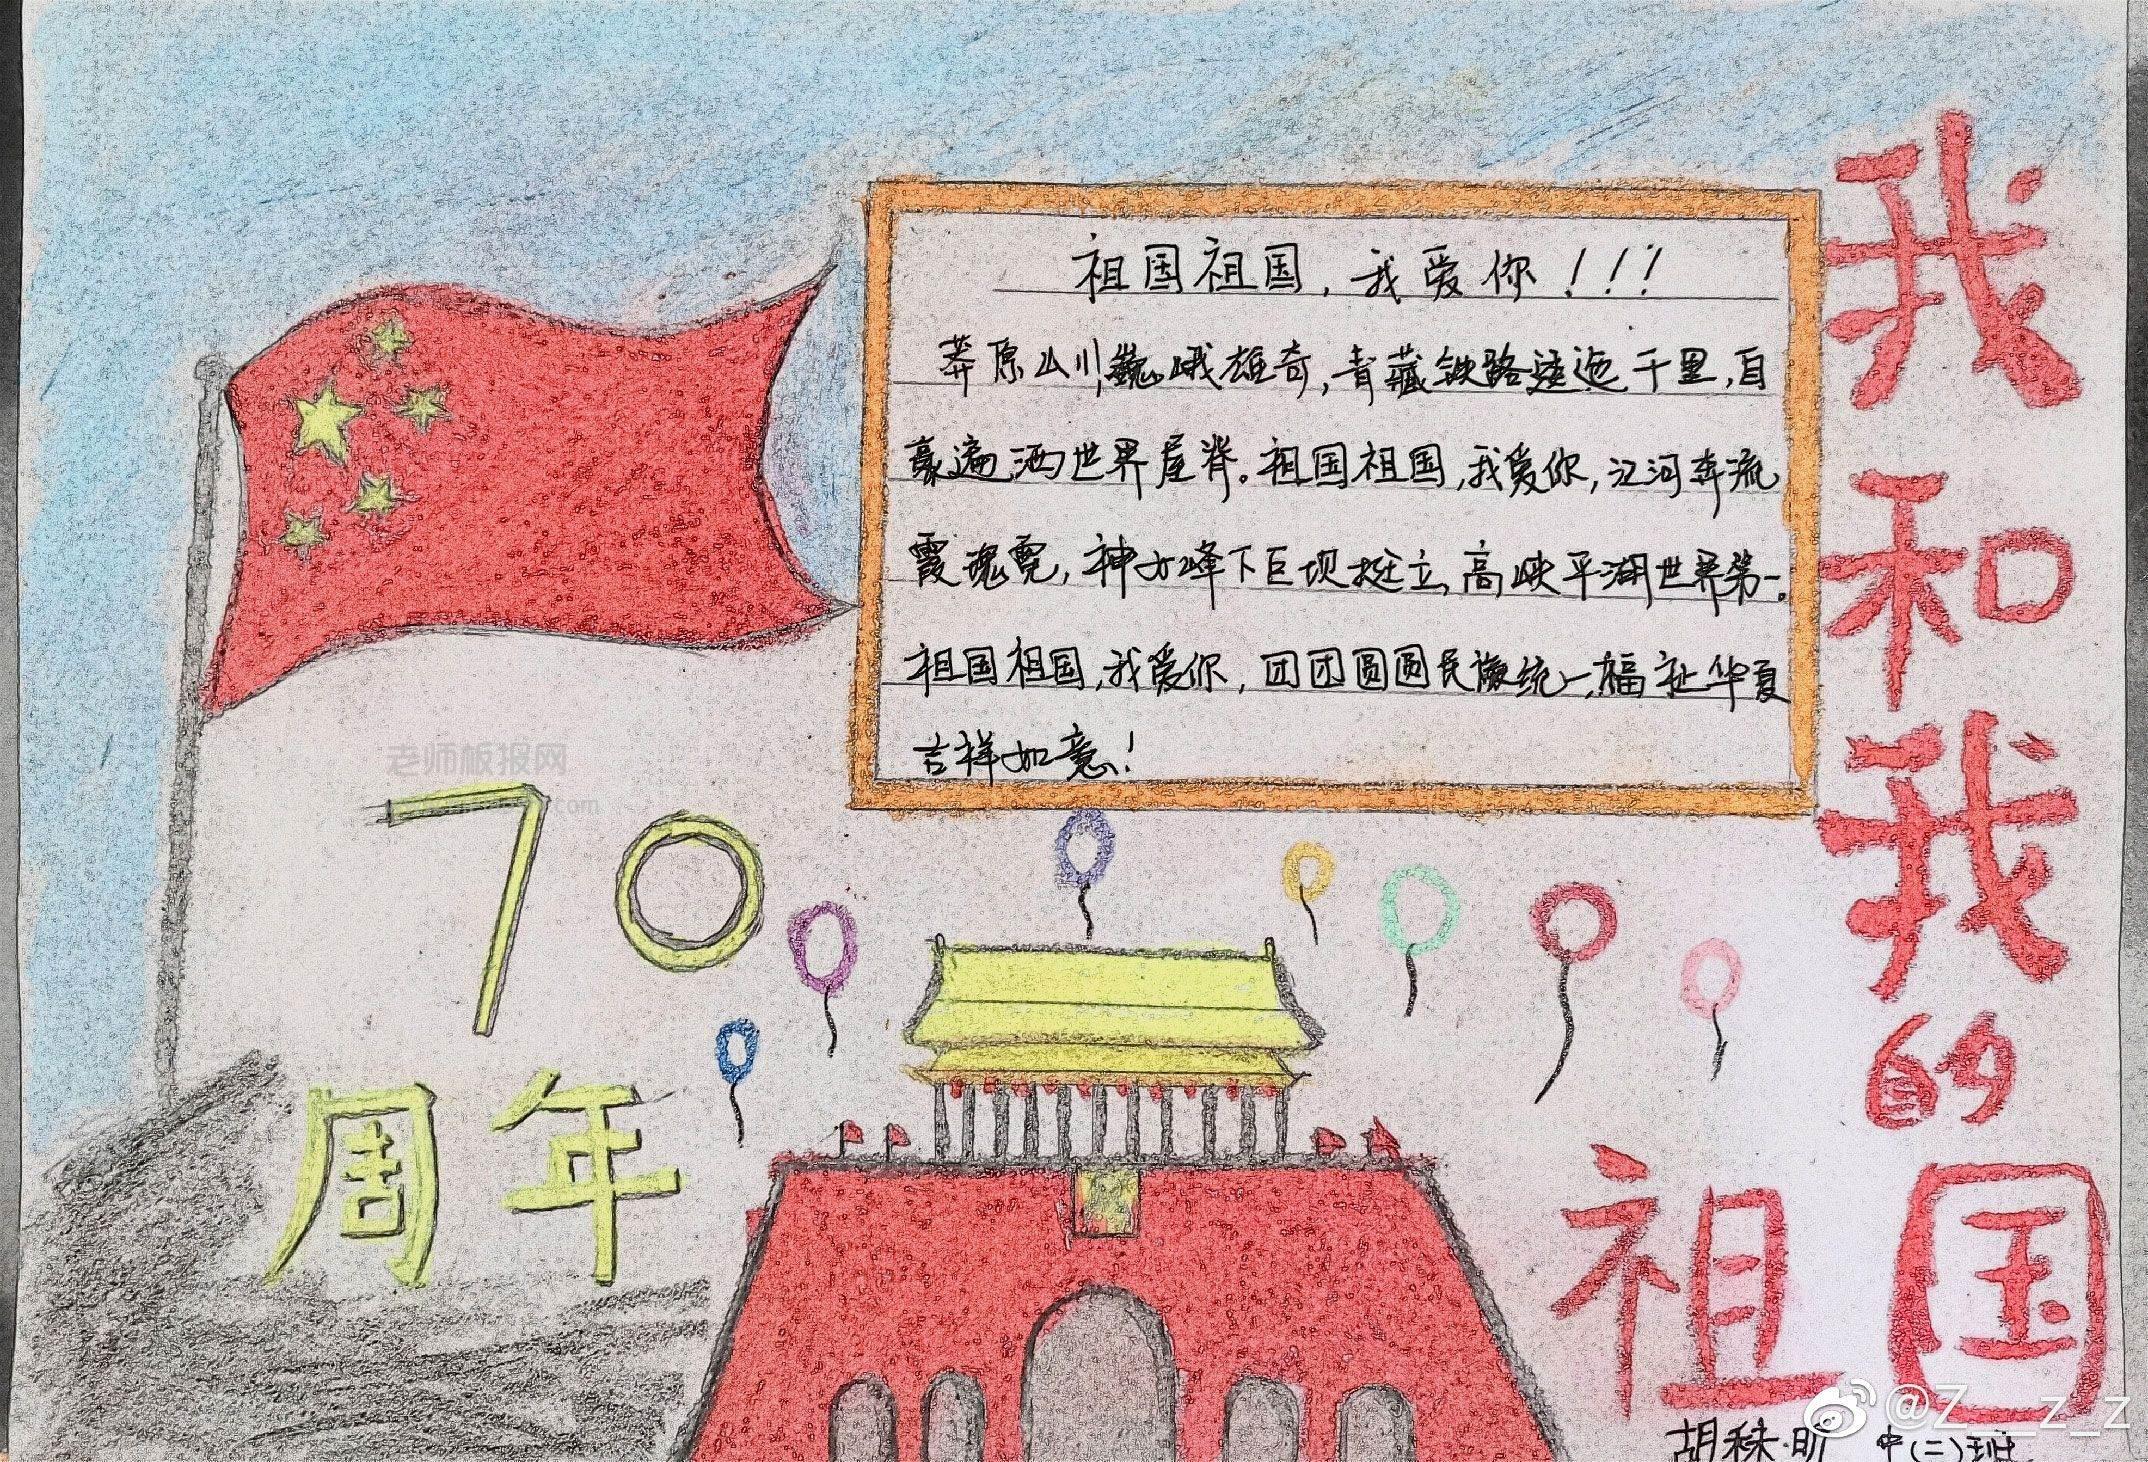 祖国祖国，我爱你！！！
莽原山川，巍峨雄奇，青藏铁路逶迤千里，自
豪遍洒世界屋脊。祖国祖国，我爱你，江河奔流
霞魂霓，神女峰下巨坝挺立，高峡平湖世界第一。
祖国祖国，我爱你，团团圆圆民族统一，福祉华夏
吉祥如意！
我和我的
祖国
70
周年
老师板报网
胡秣 中(二)班
@Z__z_z